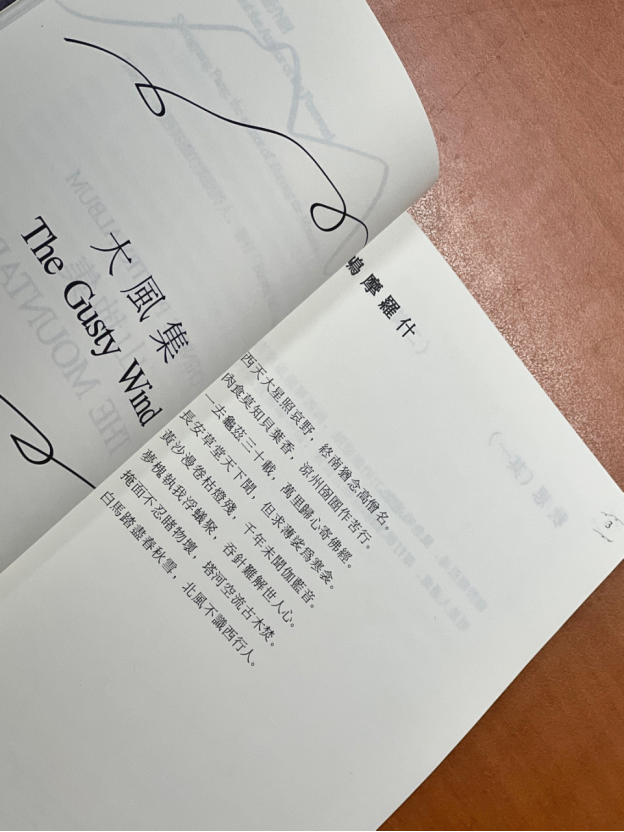 大風集
The Gusty Wind
鳩摩羅什
西天大星照哀野，終南猶念高僧名。
肉食莫知貝葉香，涼州囹圄作苦行。
一去龜茲三十載，萬里歸心寄佛經。
長安草堂天下聞，但求薄裟爲寒衾。
黃沙漫卷枯燈殘，千年未聞伽藍音。
夢槐執我浮蟻聚，吞針難解世人心。
掩面不忍賭物壞，塔河空流古木焚。
白馬踏盡春秋雪，北風不識西行人。
3